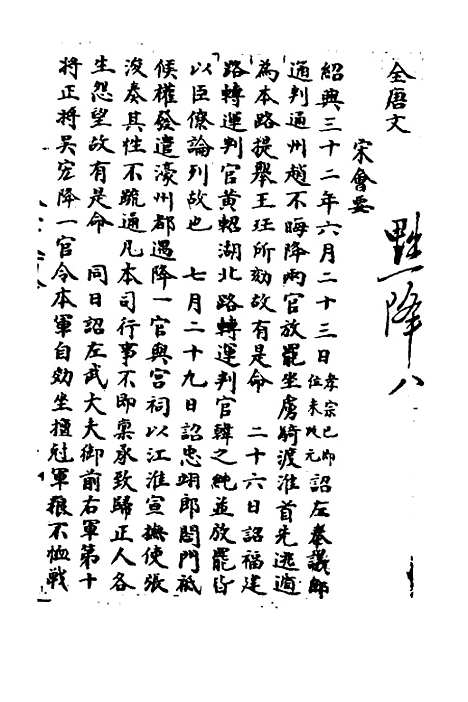 全唐文
黜降八
宋會要
紹興三十二年六月二十三日孝宗已即位未改元詔左奉議郎
通判通州趙不晦降兩官放罷坐虜騎渡淮首先逃遁
為本路提舉王珏所劾故有是命　二十六日詔福建
路轉運判官黃輡湖北路轉運判官韓之純並放罷皆
以臣僚論列故也　七月二十九日詔忠翊郎閤門祗
候權發遣濠州都遇降一官與宮祠以江淮宣撫使張
浚奏其性不疏通凡本司行事不即稟承致歸正人各
生怨望故有是命　同日詔左武大夫御前右軍第十
將正將吴宏降一官令本軍自効坐擅尅軍粮不恤戰